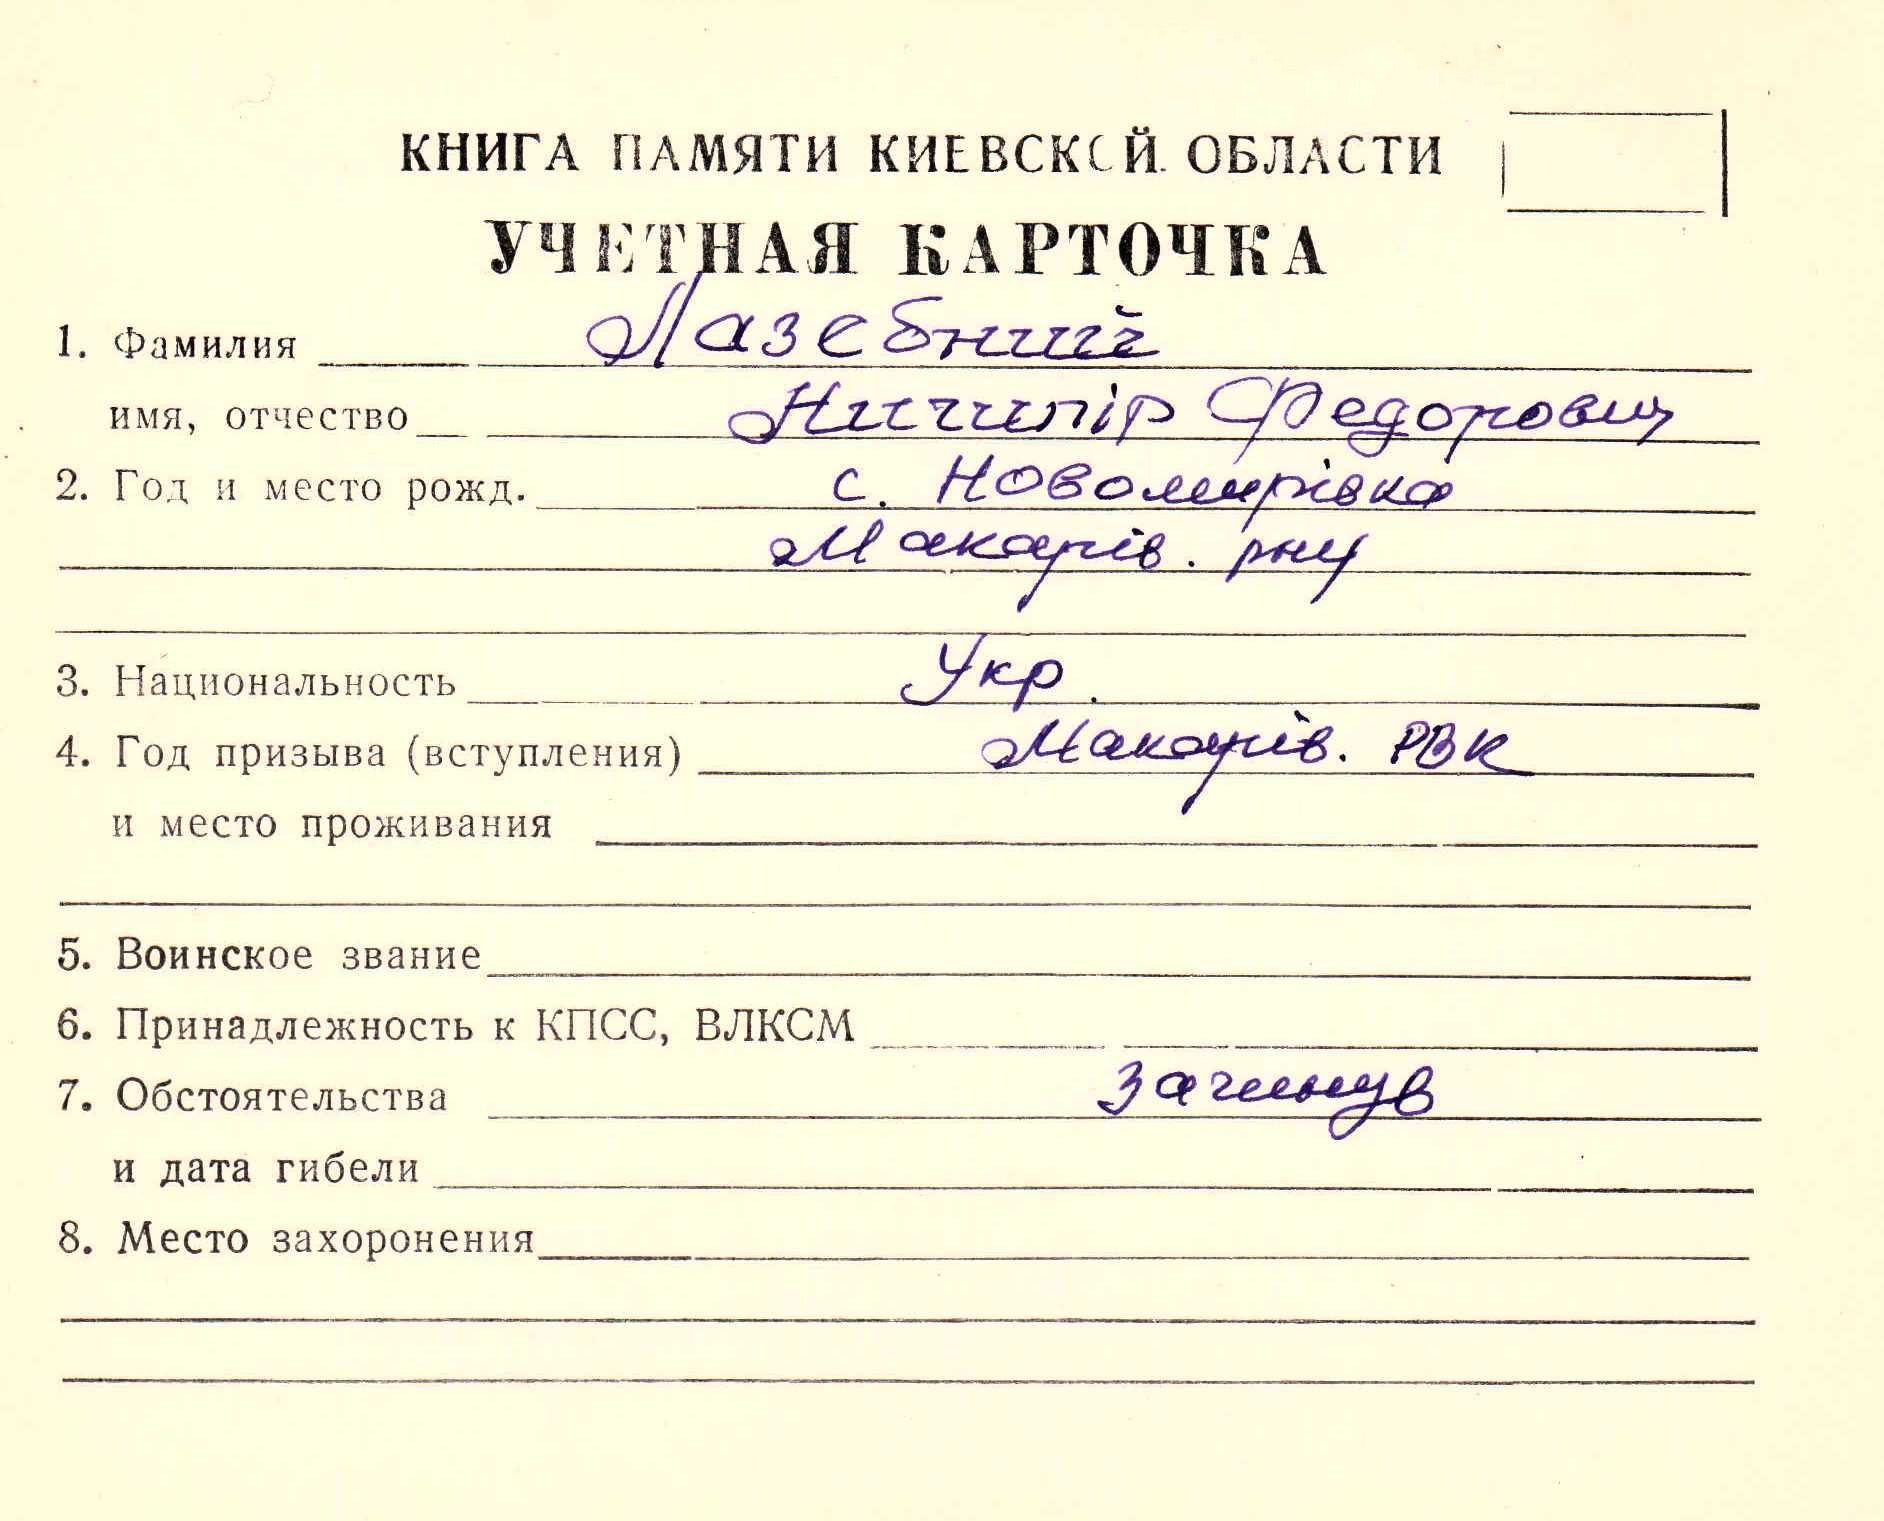 КНИГА ПАМЯТИ КИЕВСКОЙ ОБЛАСТИ
УЧЕТНАЯ КАРТОЧКА
1. Фамилия Лазебний
имя, отчество Ничипір Федорович
2. Год и место рожд. с. Новомирівка
Макарів. р-ну
3. Национальность Укр.
4. Год призыва (вступления) Макарів. РВК
и место проживания
5. Воинское звание
6. Принадлежность к КПСС, ВЛКСМ
7. Обстоятельства загинув
и дата гибели
8. Место захоронения